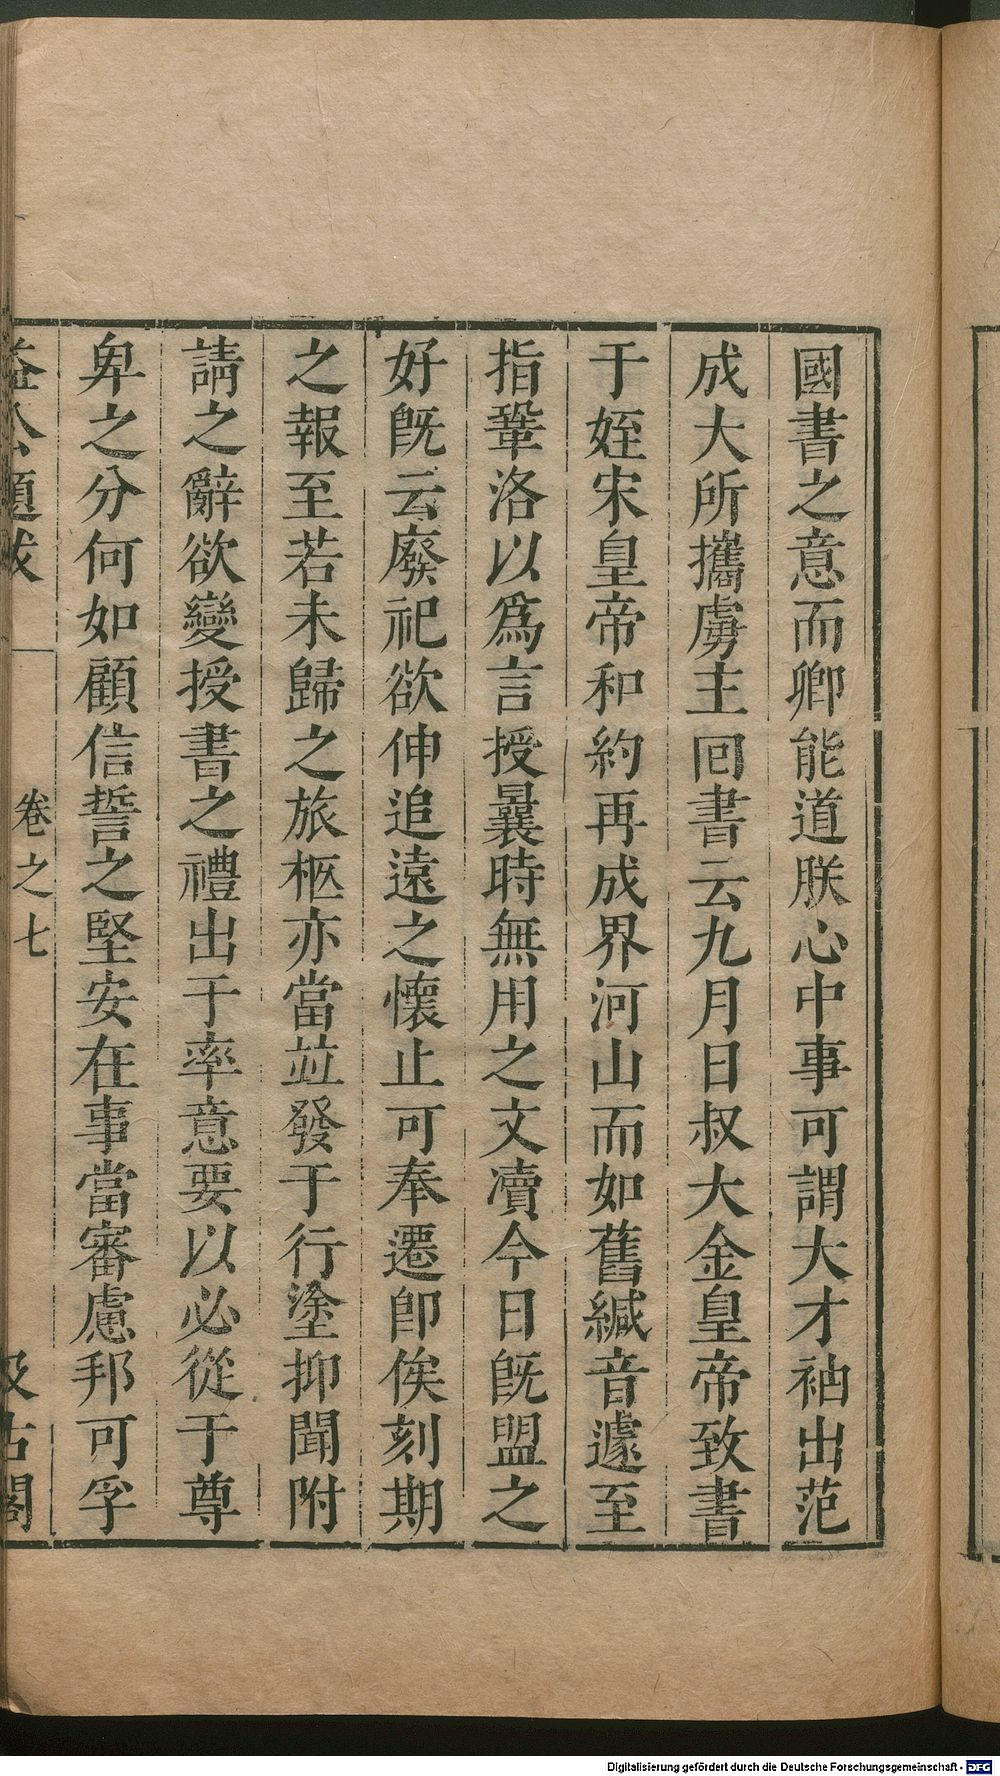 國書之意而卿能道朕心中事可謂大才袖出范
成大所攜虜主回書云九月日叔大金皇帝致書
于姪宋皇帝和約再成界河山而如舊緘音遽至
指鞏洛以爲言授曩時無用之文凟今日旣盟之
好旣云廢祀欲伸追遠之懷止可奉遷卽俟刻期
之報至若未歸之旅柩亦當並發于行塗抑聞附
請之辭欲變授書之禮出于率意要以必從于尊
卑之分何如顧信誓之堅安在事當審慮邦可孚
益公題跋 卷之七 汲古閣
Digitalisierung gefördert durch die Deutsche Forschungsgemeinschaft - DFG